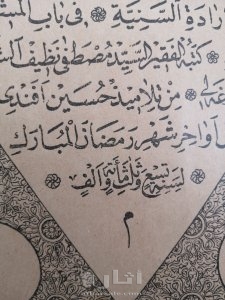 رادة السنية * في باب المش
كتبه الفقير السيد مصطفى نظيف الش
غه لي * من تلاميد حسين افندي
ل اواخر شهر رمضان المبارك
* لسنة تسع وثلثمائة والف *
م